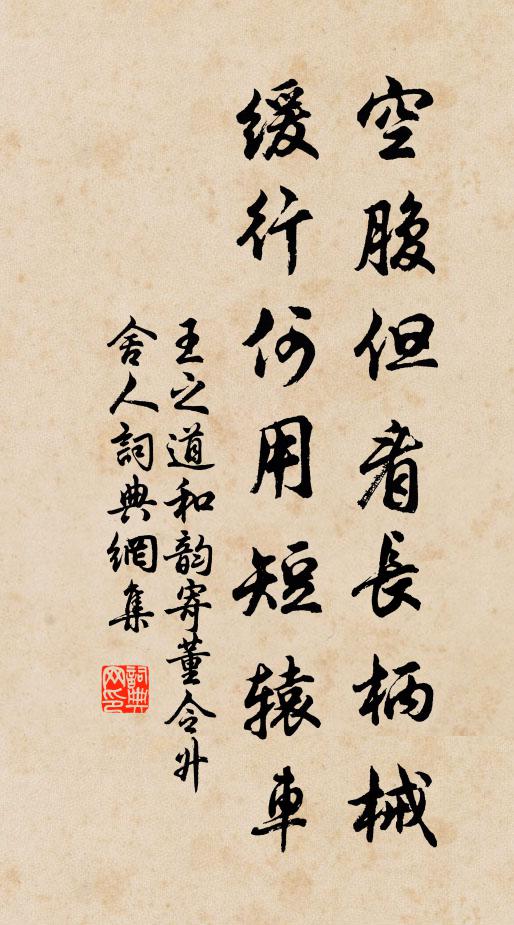 空腹但看長柄械
緩行何用短辕車
王之道和韵寄董令升
舍人詞典網集
詞典网印